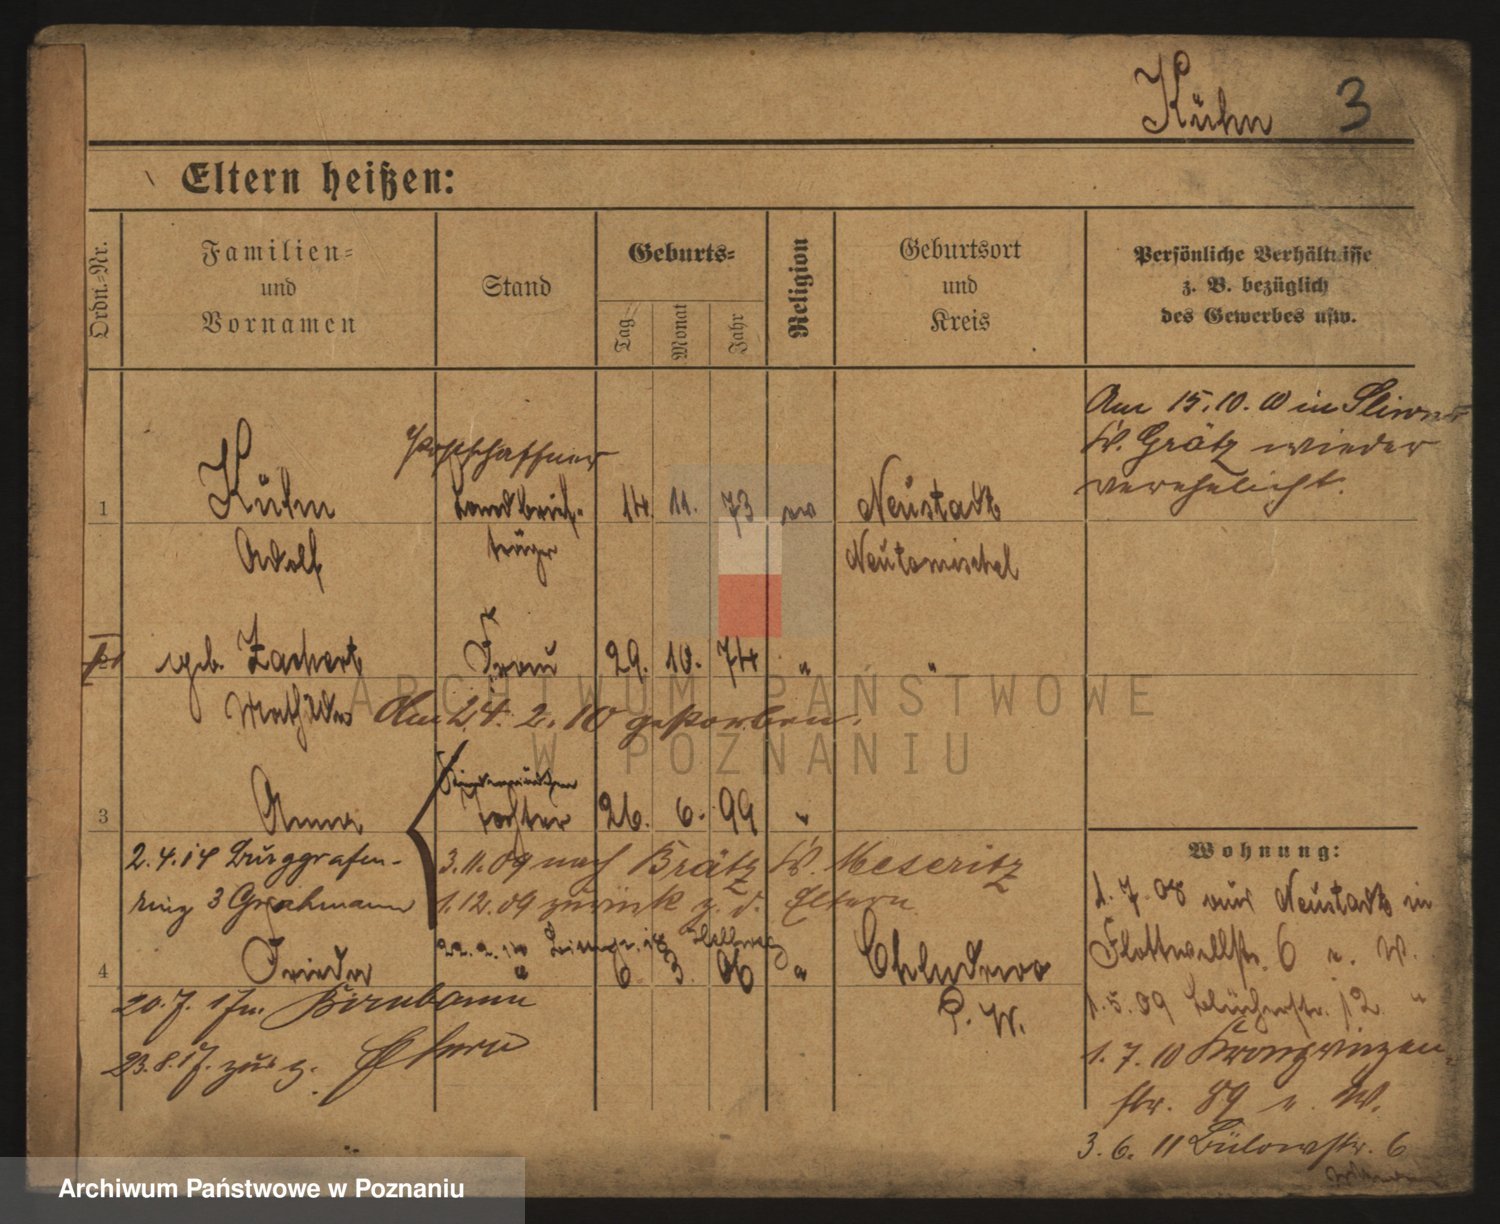 Kühn 3
Eltern heißen:
Ordn.-Nr.
Familien-
und
Vornamen
Stand
Geburts-
Tag
Monat
Jahr
Religion
Geburtsort
und
Kreis
Persönliche Verhältnisse
z. B. bezüglich
des Gewerbes usw.
Am 15.10.10 in
Kr. Grätz wieder
verehelicht.
Postschaffner
1 Kühn Landbrief- 14. 11. 73 ev Neustadt
Adolf träger Neutomischel
geb. Zachert Frau 29. 10. 74 " "
Mathilde Am 24. 2. 10 gestorben.
3 Anna Tochter 26. 6. 99 "
2.4.14 Burggrafen-
ring 3 Grahmann
3.11.09 nach Brätz Kr. Meseritz
1.12.09 zurück z. d. Eltern
4 Frieda " 6 3. 06 " Chludowo
P. W.
20.7.17 n. Birnbaum
23.8.17. zur z. Eltern
Wohnung:
1.7.08 aus Neustadt in
Flottwellstr. 6 b. W.
1.5.09 Blücherstr. 12 "
1.7.10 Kronprinzen-
str. 89 b. W.
3.6.11 Bülowstr. 6
ARCHIWUM PAŃSTWOWE
W POZNANIU
Archiwum Państwowe w Poznaniu